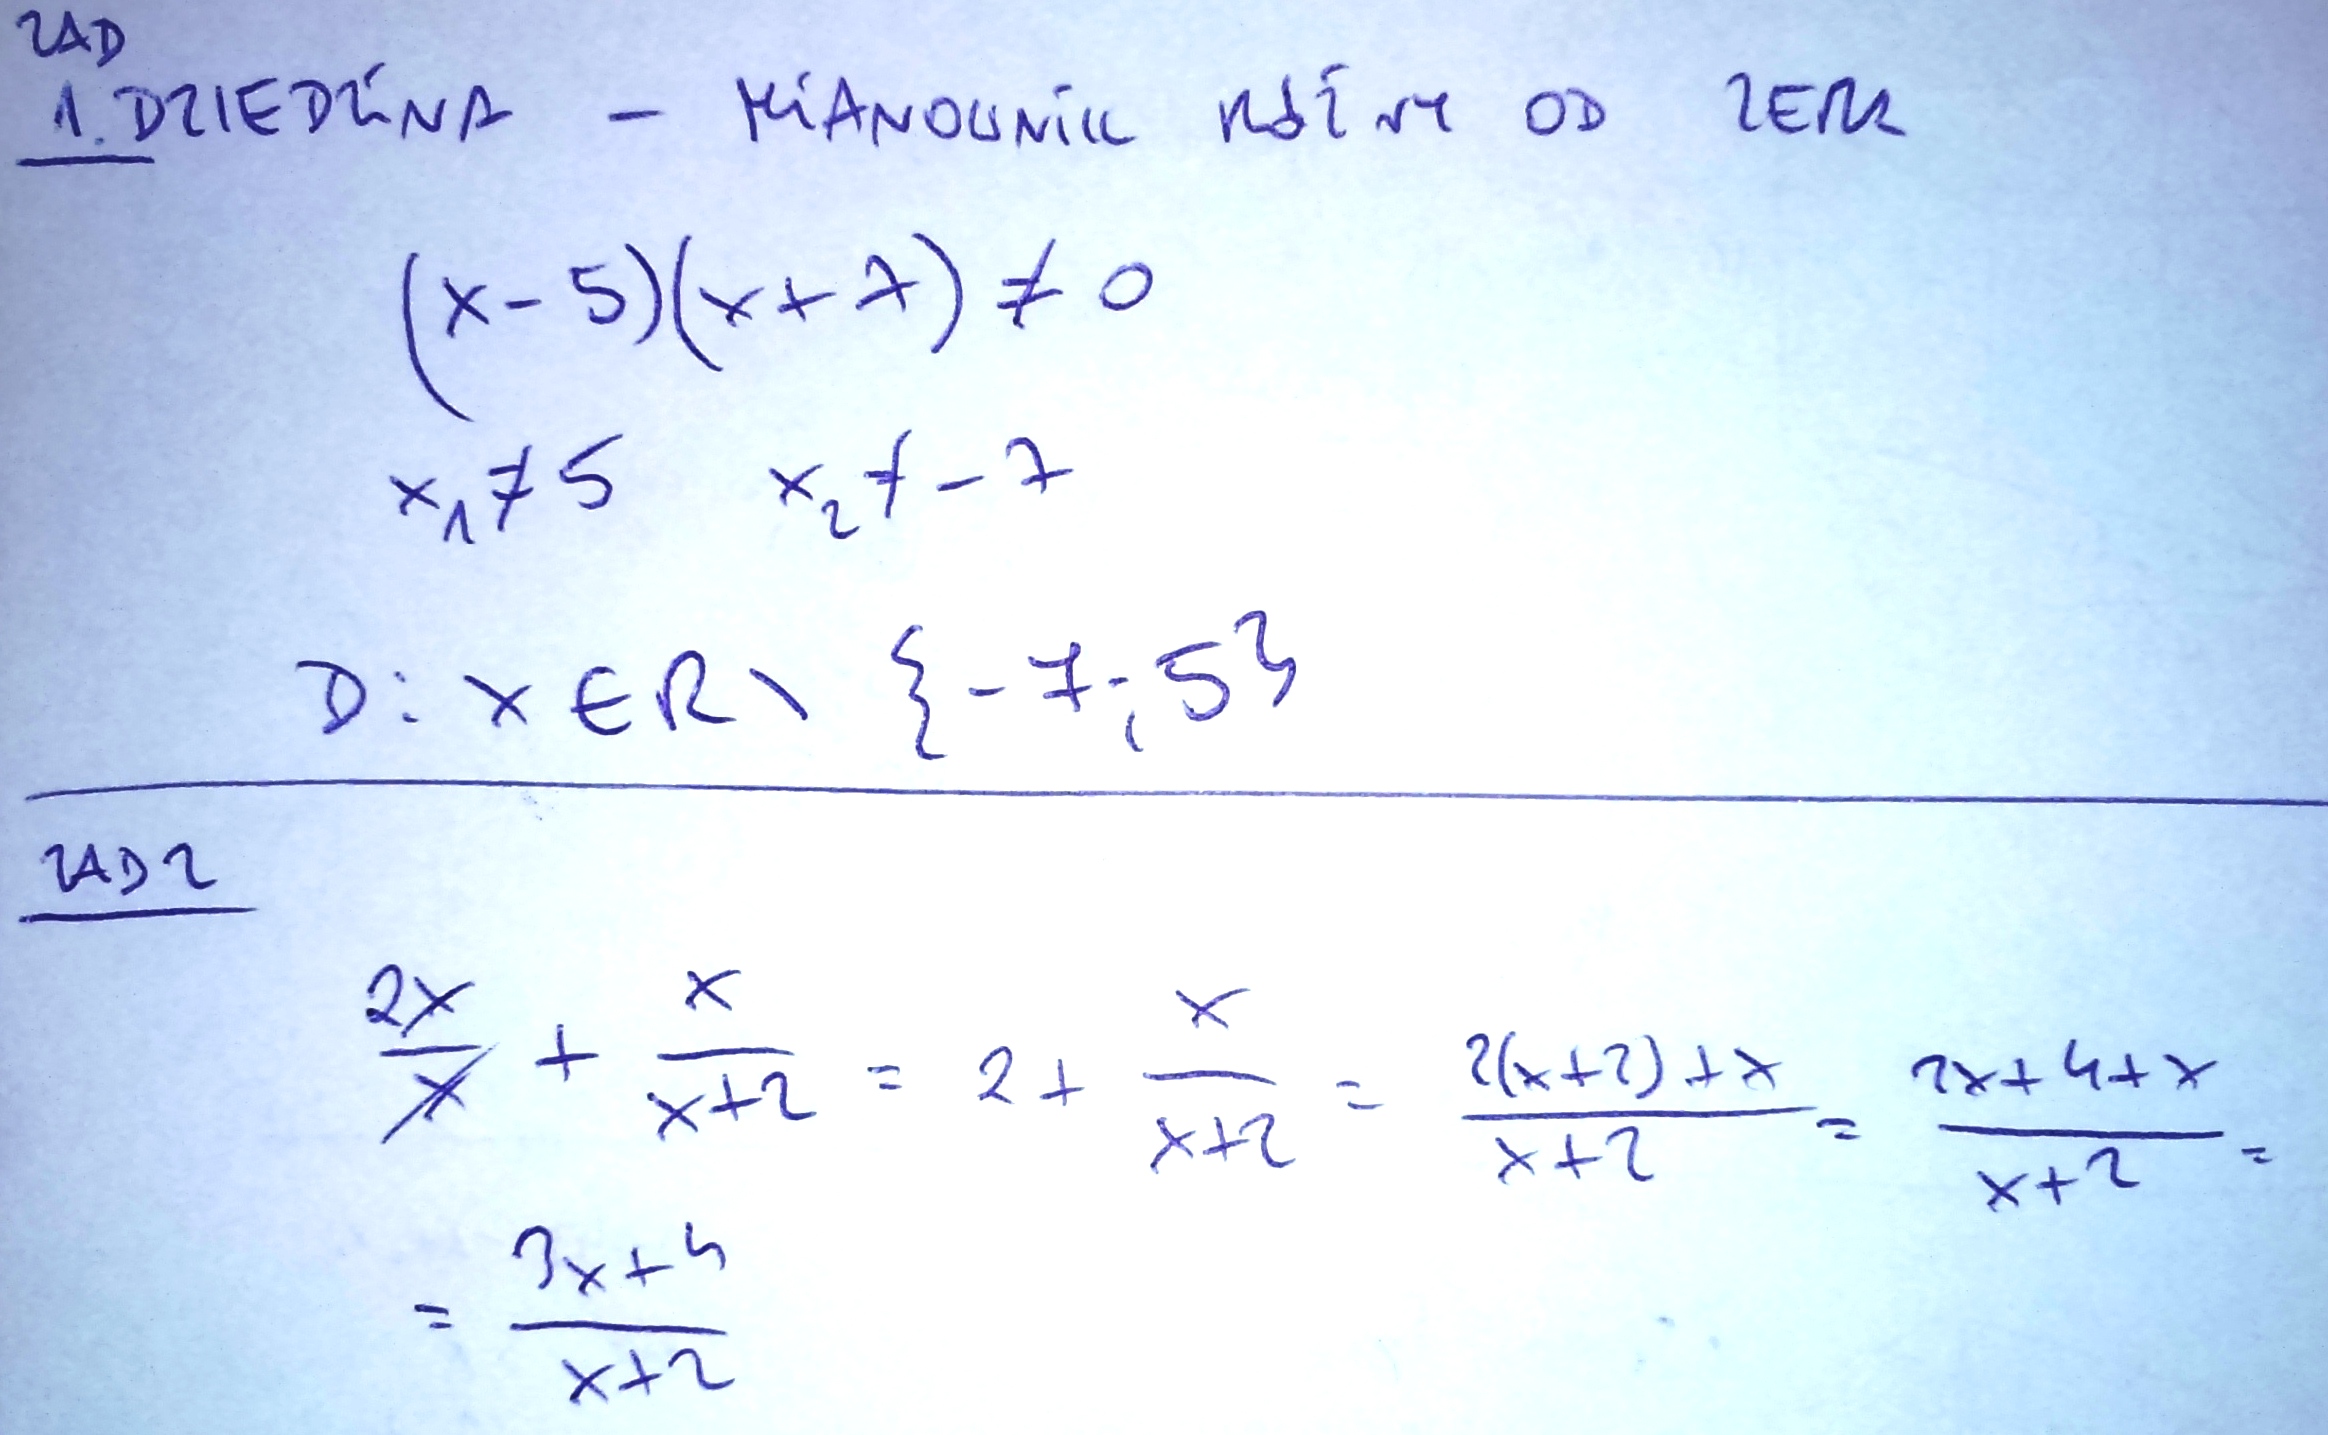 ZAD
1. DZIEDZINA - MIANOWNIK RÓŻNY OD ZERA
(x-5)(x+7) ≠ 0
x₁ ≠ 5 x₂ ≠ -7
D: x ∈ R \ {-7; 5}
ZAD 2
2x/x + x/(x+2) = 2 + x/(x+2) = (2(x+2)+x)/(x+2) = (2x+4+x)/(x+2) =
= (3x+4)/(x+2)